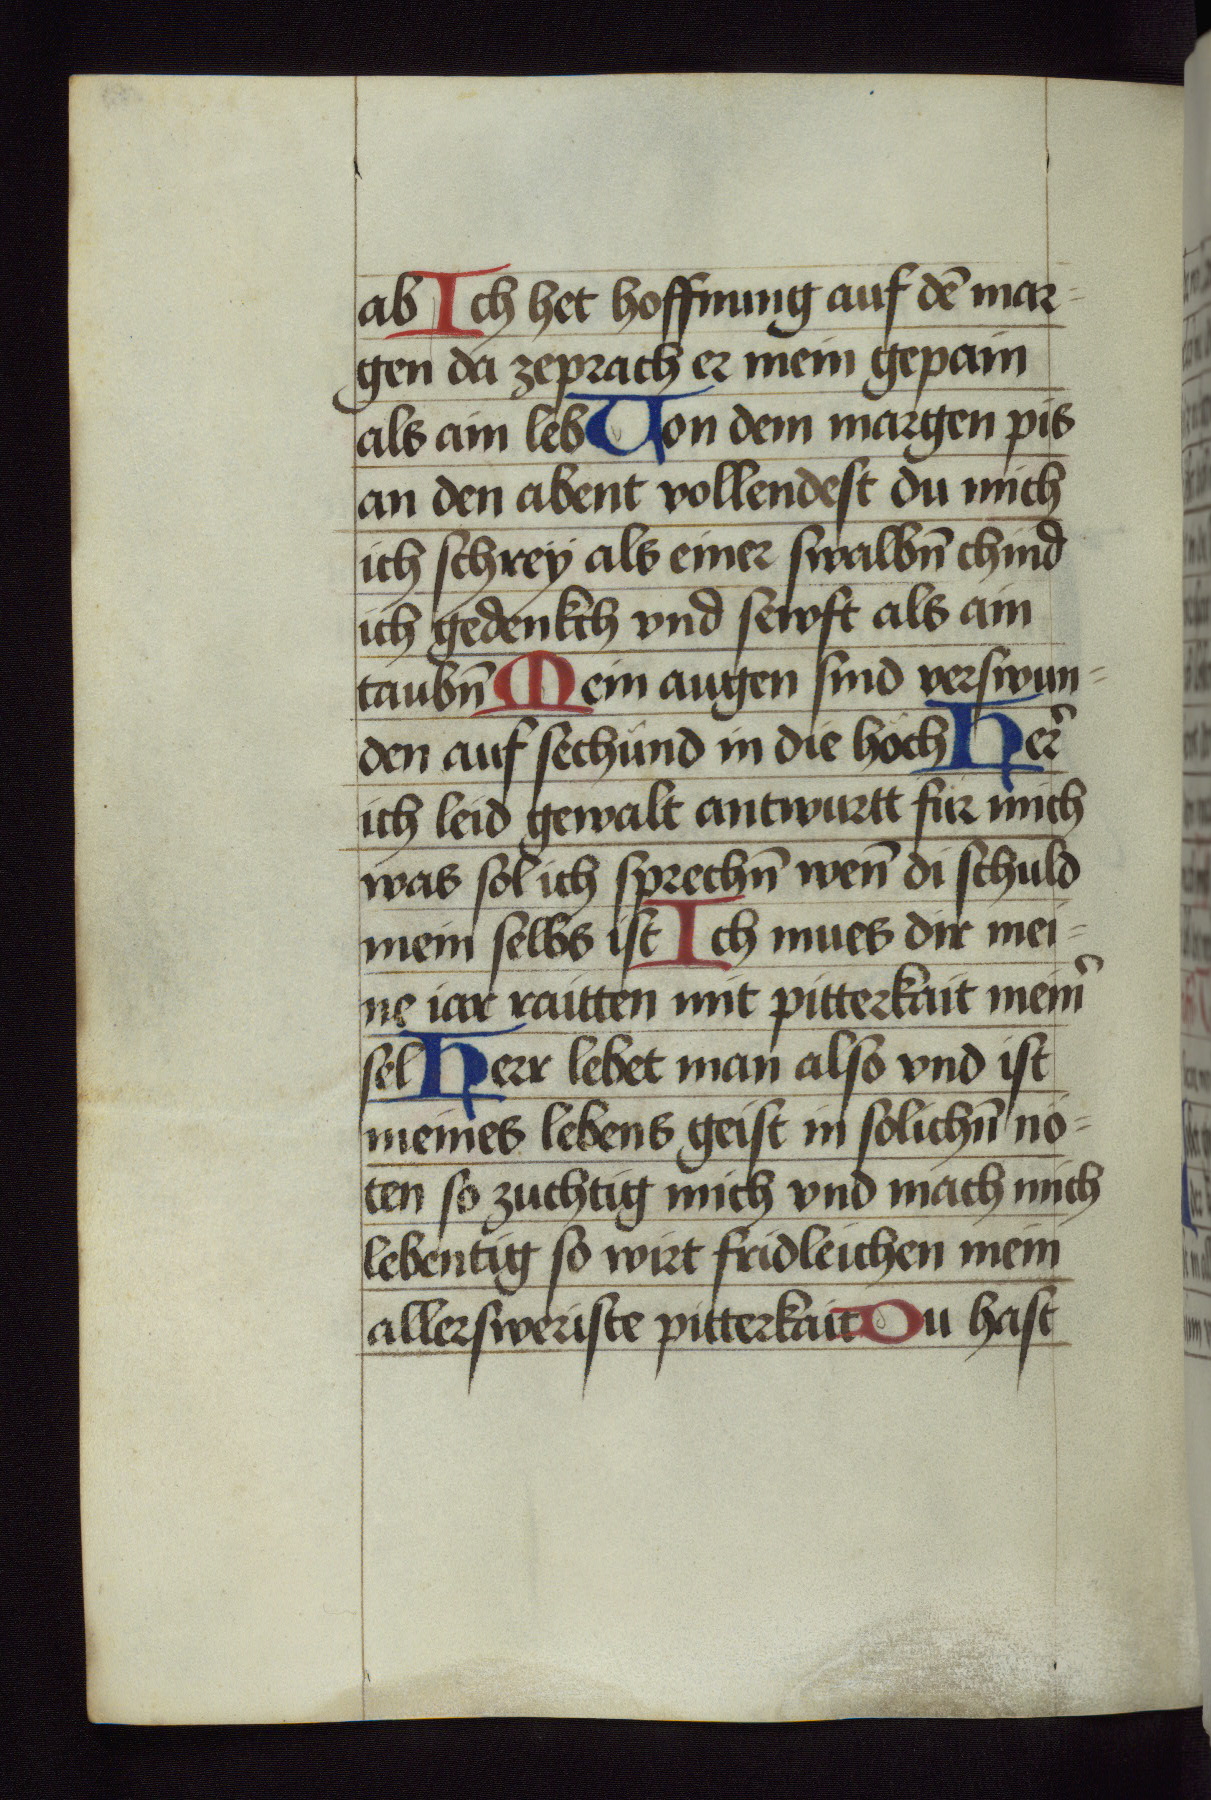 ab Ich het hoffnung auf dē mar-
gen da zeprach er mein gepain
als ain leb Von dem margen pis
an den abent vollendest du mich
ich schrey als einer swalbn̄ chind
ich gedenkch vnd sewft als ain
taubn̄ Mein augen sind verswun-
den auf sechund in die höch Her̄
ich leid gewalt antwurtt für mich
was sol ich sprechn̄ wen̄ di schuld
mein selbs ist Ich mues dir mei-
ne iar raitten mit pitterkait mein̄
sel Herr lebet man also vnd ist
meines lebens geist in solichn̄ nö-
ten so zuchtig mich vnd mach mich
lebentig so wirt fridleichen mein
allersweriste pitterkait Du hast